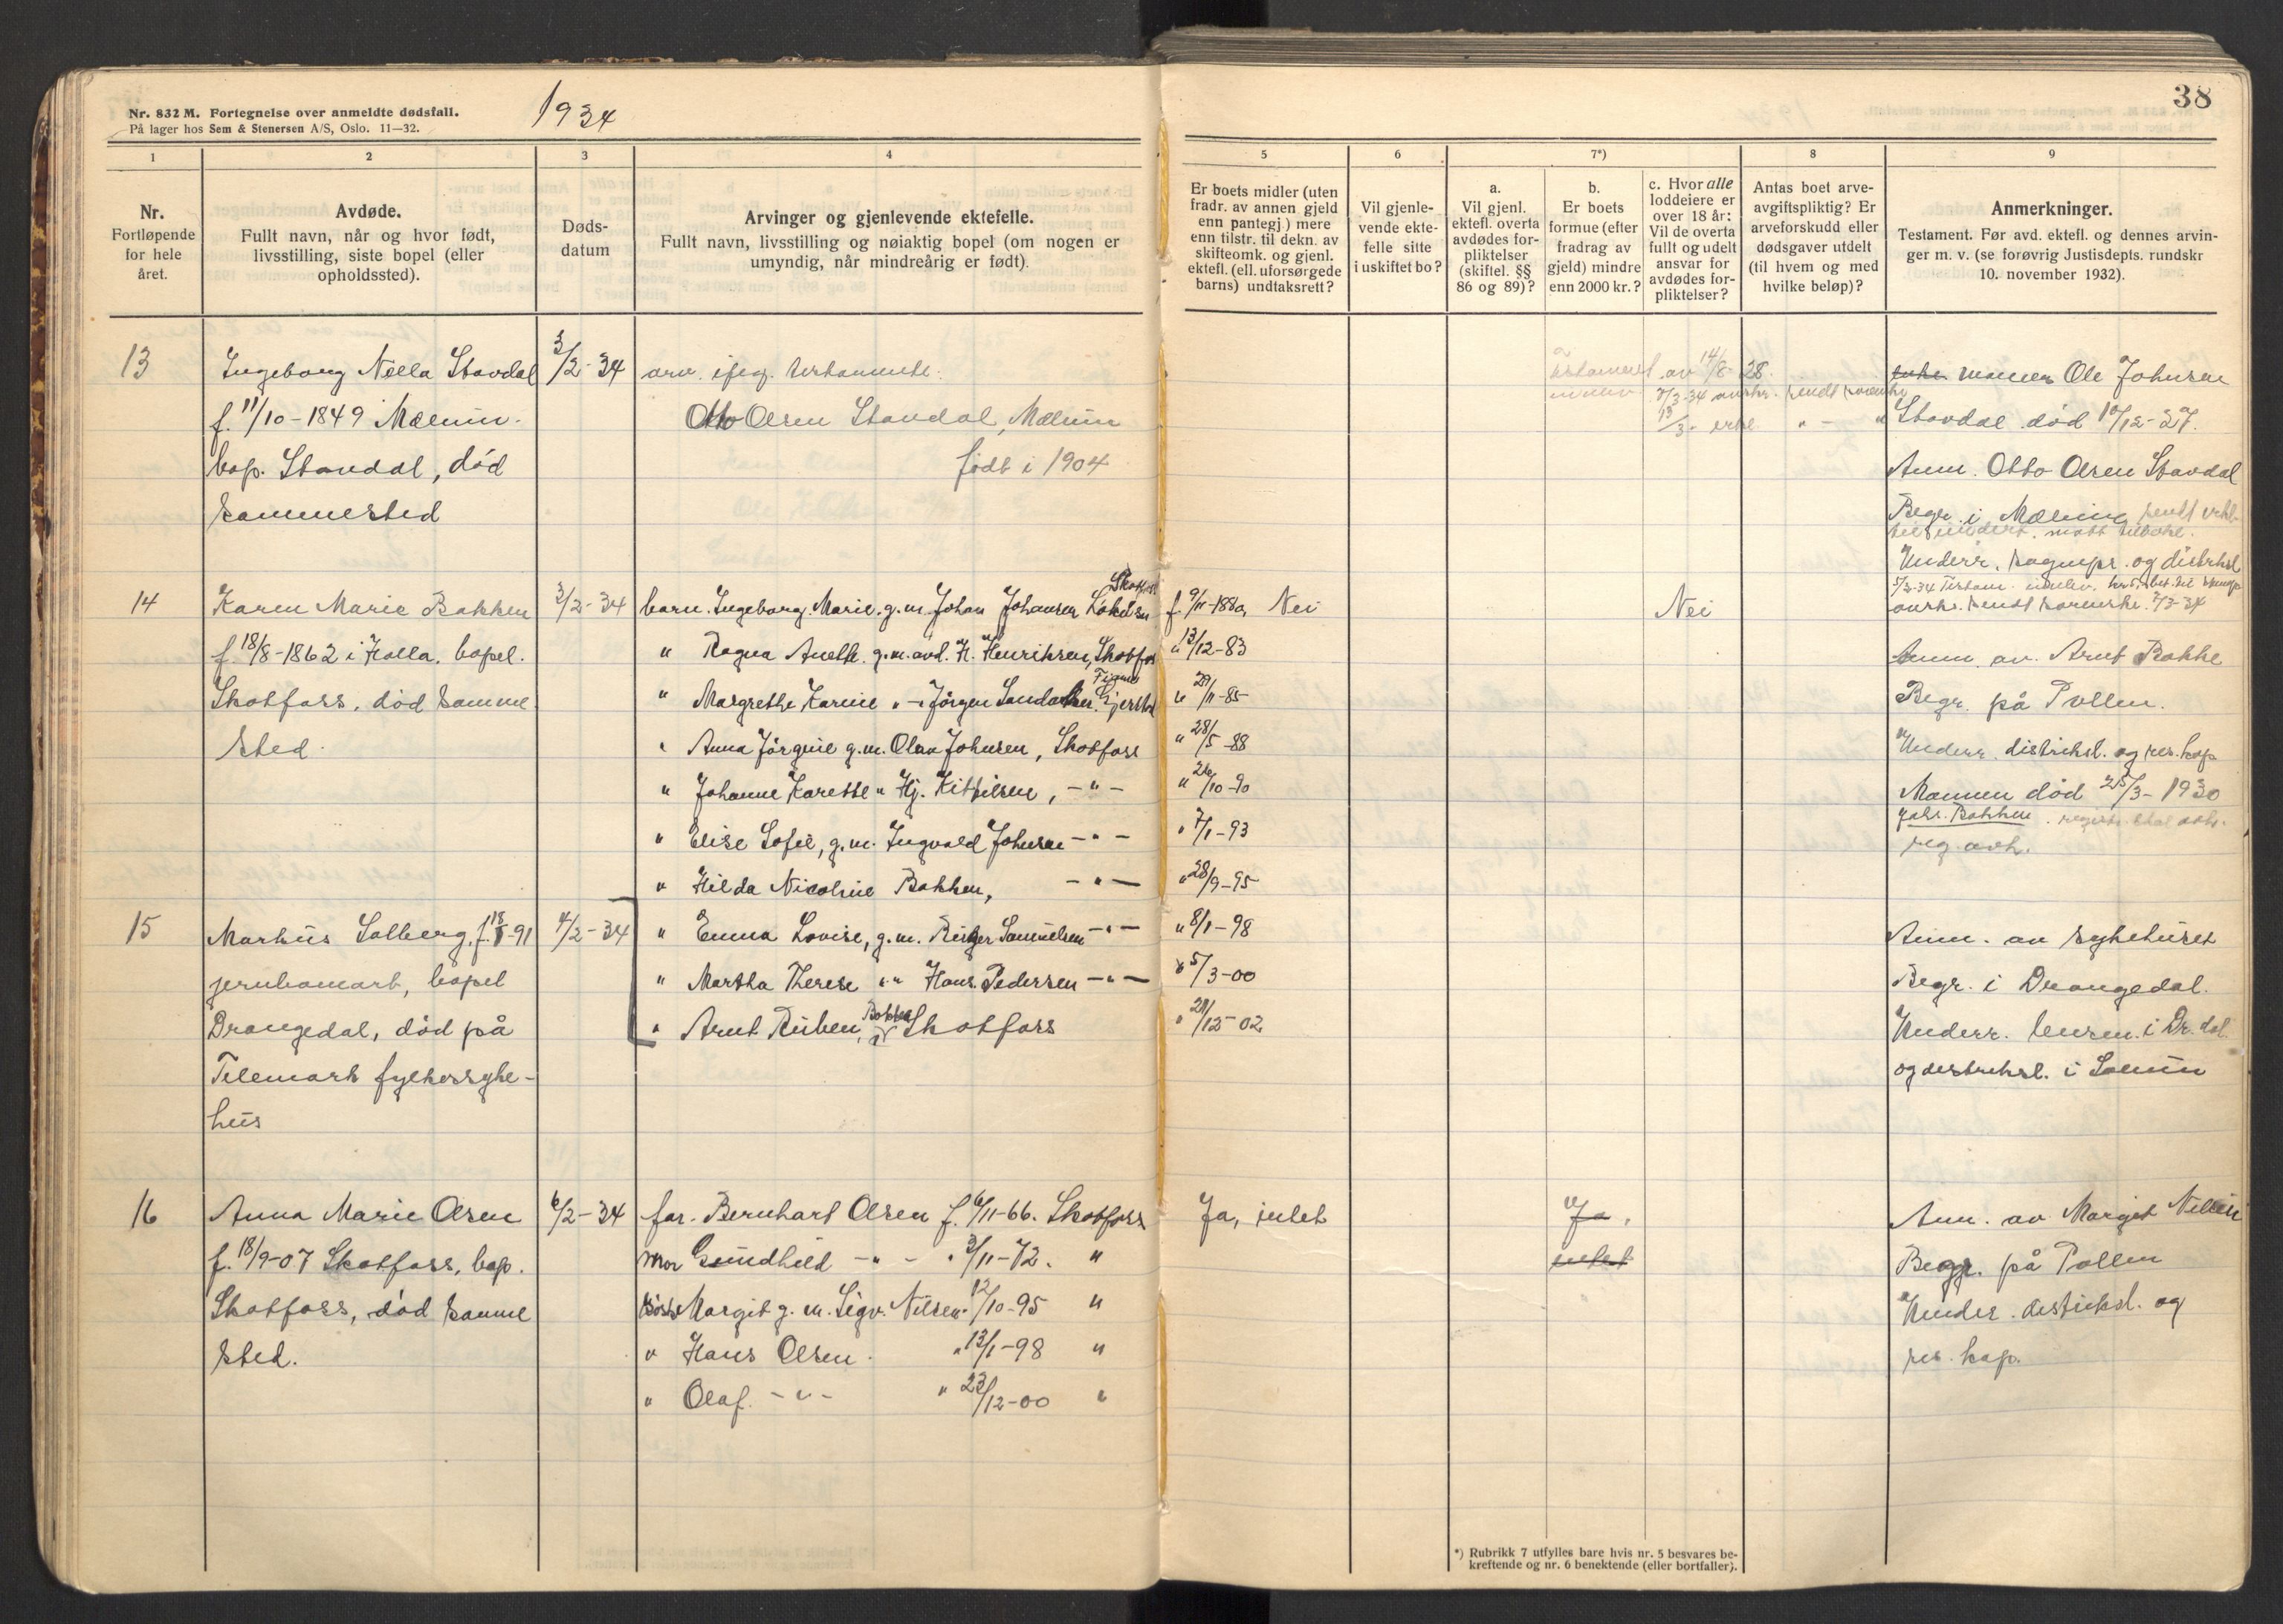 Nr. 832 M. Fortegnelse over anmeldte dødsfall.
På lager hos Sem & Stenersen A/S, Oslo. 11—32.
1934
38
1
2
3
4
5
6
7*)
8
9
Nr.
Fortløpende
for hele
året.
Avdøde.
Fullt navn, når og hvor født,
livsstilling, siste bopel (eller
opholdssted).
Døds-
datum
Arvinger og gjenlevende ektefelle.
Fullt navn, livsstilling og nøiaktig bopel (om nogen er
umyndig, når mindreårig er født).
Er boets midler (uten
fradr. av annen gjeld
enn pantegj.) mere
enn tilstr. til dekn. av
skifteomk. og gjenl.
ektefl. (ell. uforsørgede
barns) undtaksrett?
Vil gjenle-
vende ekte-
felle sitte
i uskiftet bo?
a.
Vil gjenl.
ektefl. overta
avdødes for-
pliktelser
(skiftel. §§
86 og 89)?
b.
Er boets
formue (efter
fradrag av
gjeld) mindre
enn 2000 kr.?
c. Hvor alle
loddeiere er
over 18 år:
Vil de overta
fullt og udelt
ansvar for
avdødes for-
pliktelser?
Antas boet arve-
avgiftspliktig? Er
arveforskudd eller
dødsgaver utdelt
(til hvem og med
hvilke beløp)?
Anmerkninger.
Testament. Før avd. ektefl. og dennes arvin-
ger m. v. (se forøvrig Justisdepts. rundskr
10. november 1932).
13
Ingeborg Nella Stavdal
f. 11/10-1849 Mælum.
bop. Stavdal, død
sammested
3/2-34
arv. iføg. testamente:
Otto Olsen Stavdal, Mælum
født i 1904
Testament av 14/8-28.
mannen Ole Johnsen
Stavdal død 10/12-27.
Anm. Otto Olsen Stavdal
Begr. i Mælum
Underr. sognepr. og distriksl
14
Karen Marie Bakken
f. 18/8-1862 i Holla. bopel.
Skotfoss, død samme
sted.
3/2-34
barn. Ingeborg Marie g.m. Johan Johansen Skotfoss f. 9/11-1880,
" Ragna Anette. g.m. avd. H. Henriksen, Skotfos " 13/12-83
" Margrethe Karine " - Jørgen " 29/11-85
" Anna Jørgine g.m. Olav Johnsen, Skotfoss " 28/5-88
" Johanne Karette " Hj. Kittilsen, -"- " 26/10-90
" Elise Sofie, g.m. Ingvald Johnsen -"- " 7/1-93
" Hilda Nicoline Bakken, -"- " 28/9-95
" Emma Lovise, g.m. Samuelsen -"- " 8/1-98
" Martha Therese "-" Hans Pedersen -"- " 5/3-00
" Arnt Ruben, Bakken Skotfoss " 21/12-02
Nei
Nei
Anm. av. Arnt Bakke
Begr. på Pollen.
Underr. distriksl. og res. kap
Mannen død 25/3-1930
Bakken
15
Markus Solberg, f. 18/8-91
jernbanearb, bopel
Drangedal, død på
Telemark fylkessyke-
hus
4/2-34
Anm. av sykehuset
Begr. i Drangedal.
Underr. lensm. i Dr.dal
og destriksl. i Solum
16
Anna Marie Olsen
f. 18/9-07 Skotfoss, bop.
Skotfoss, død samme
sted.
6/2-34
far. Bernhart Olsen f. 6/11-66. Skotfoss
mor Gundhild -"- " 3/11-72. "
søsk Margit g.m. Sigv. Nilsen " 12/10-95 "
" Hans Olsen. " 13/1-98 "
" Olaf. -"- " 23/12-00 "
Ja, intet
Ja,
intet
Anm. av Margit Nilsen
Begr. på Pollen
Under. distriksl. og
res. kap.
*) Rubrikk 7 utfylles bare hvis nr. 5 besvares be-
kreftende og nr. 6 benektende (eller bortfaller).